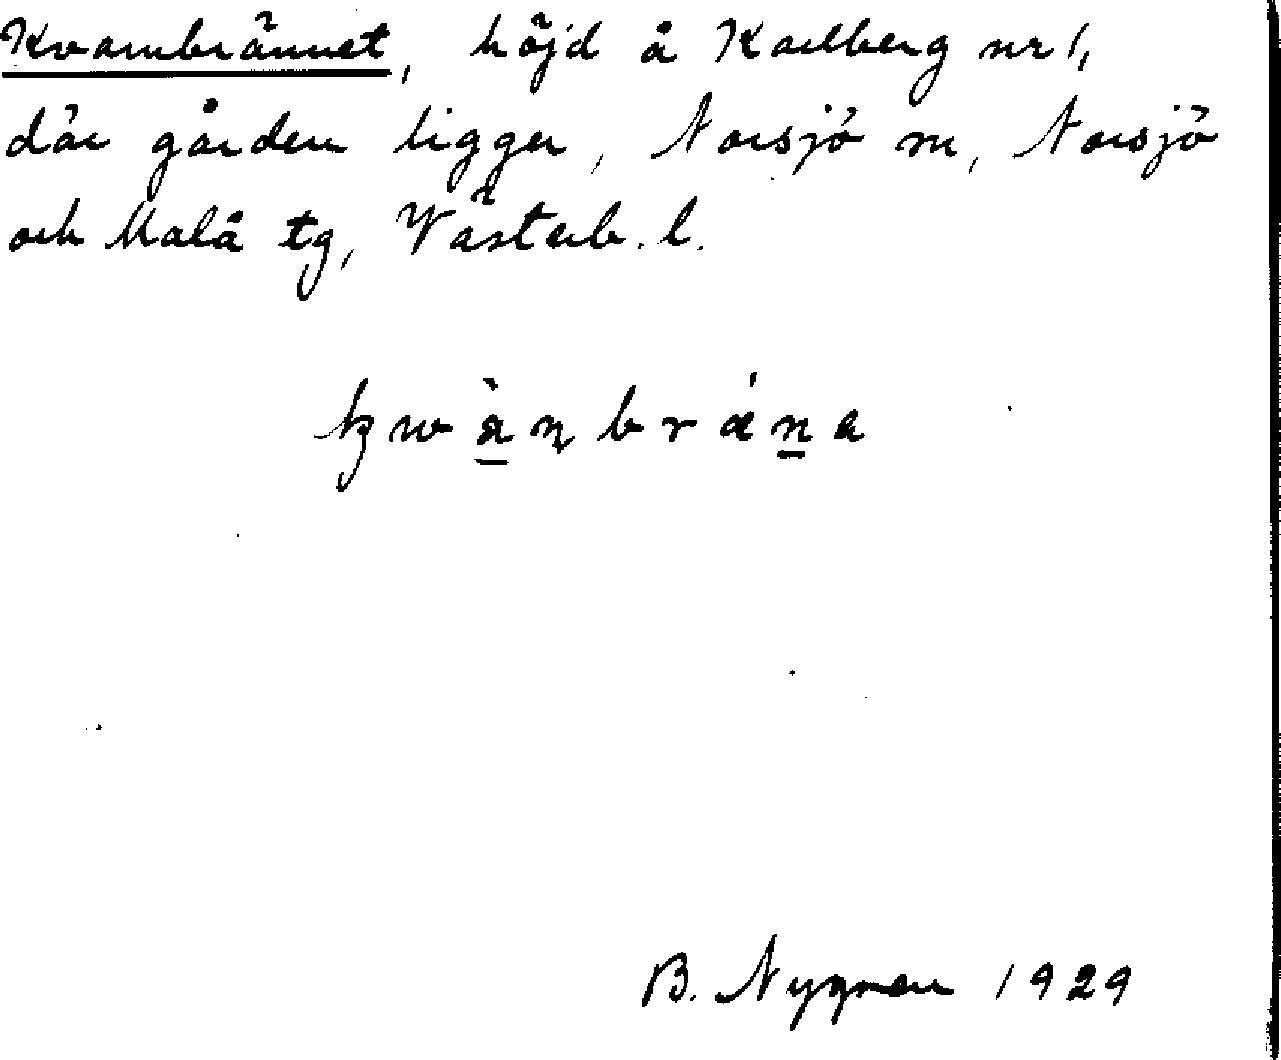 Kvarnbrännet, höjd å Karlberg nr 1,
där gården ligger, Norsjö sn, Norsjö
och Malå tg, Västerb. l.
kwànbrǽna
B. Nygren 1929